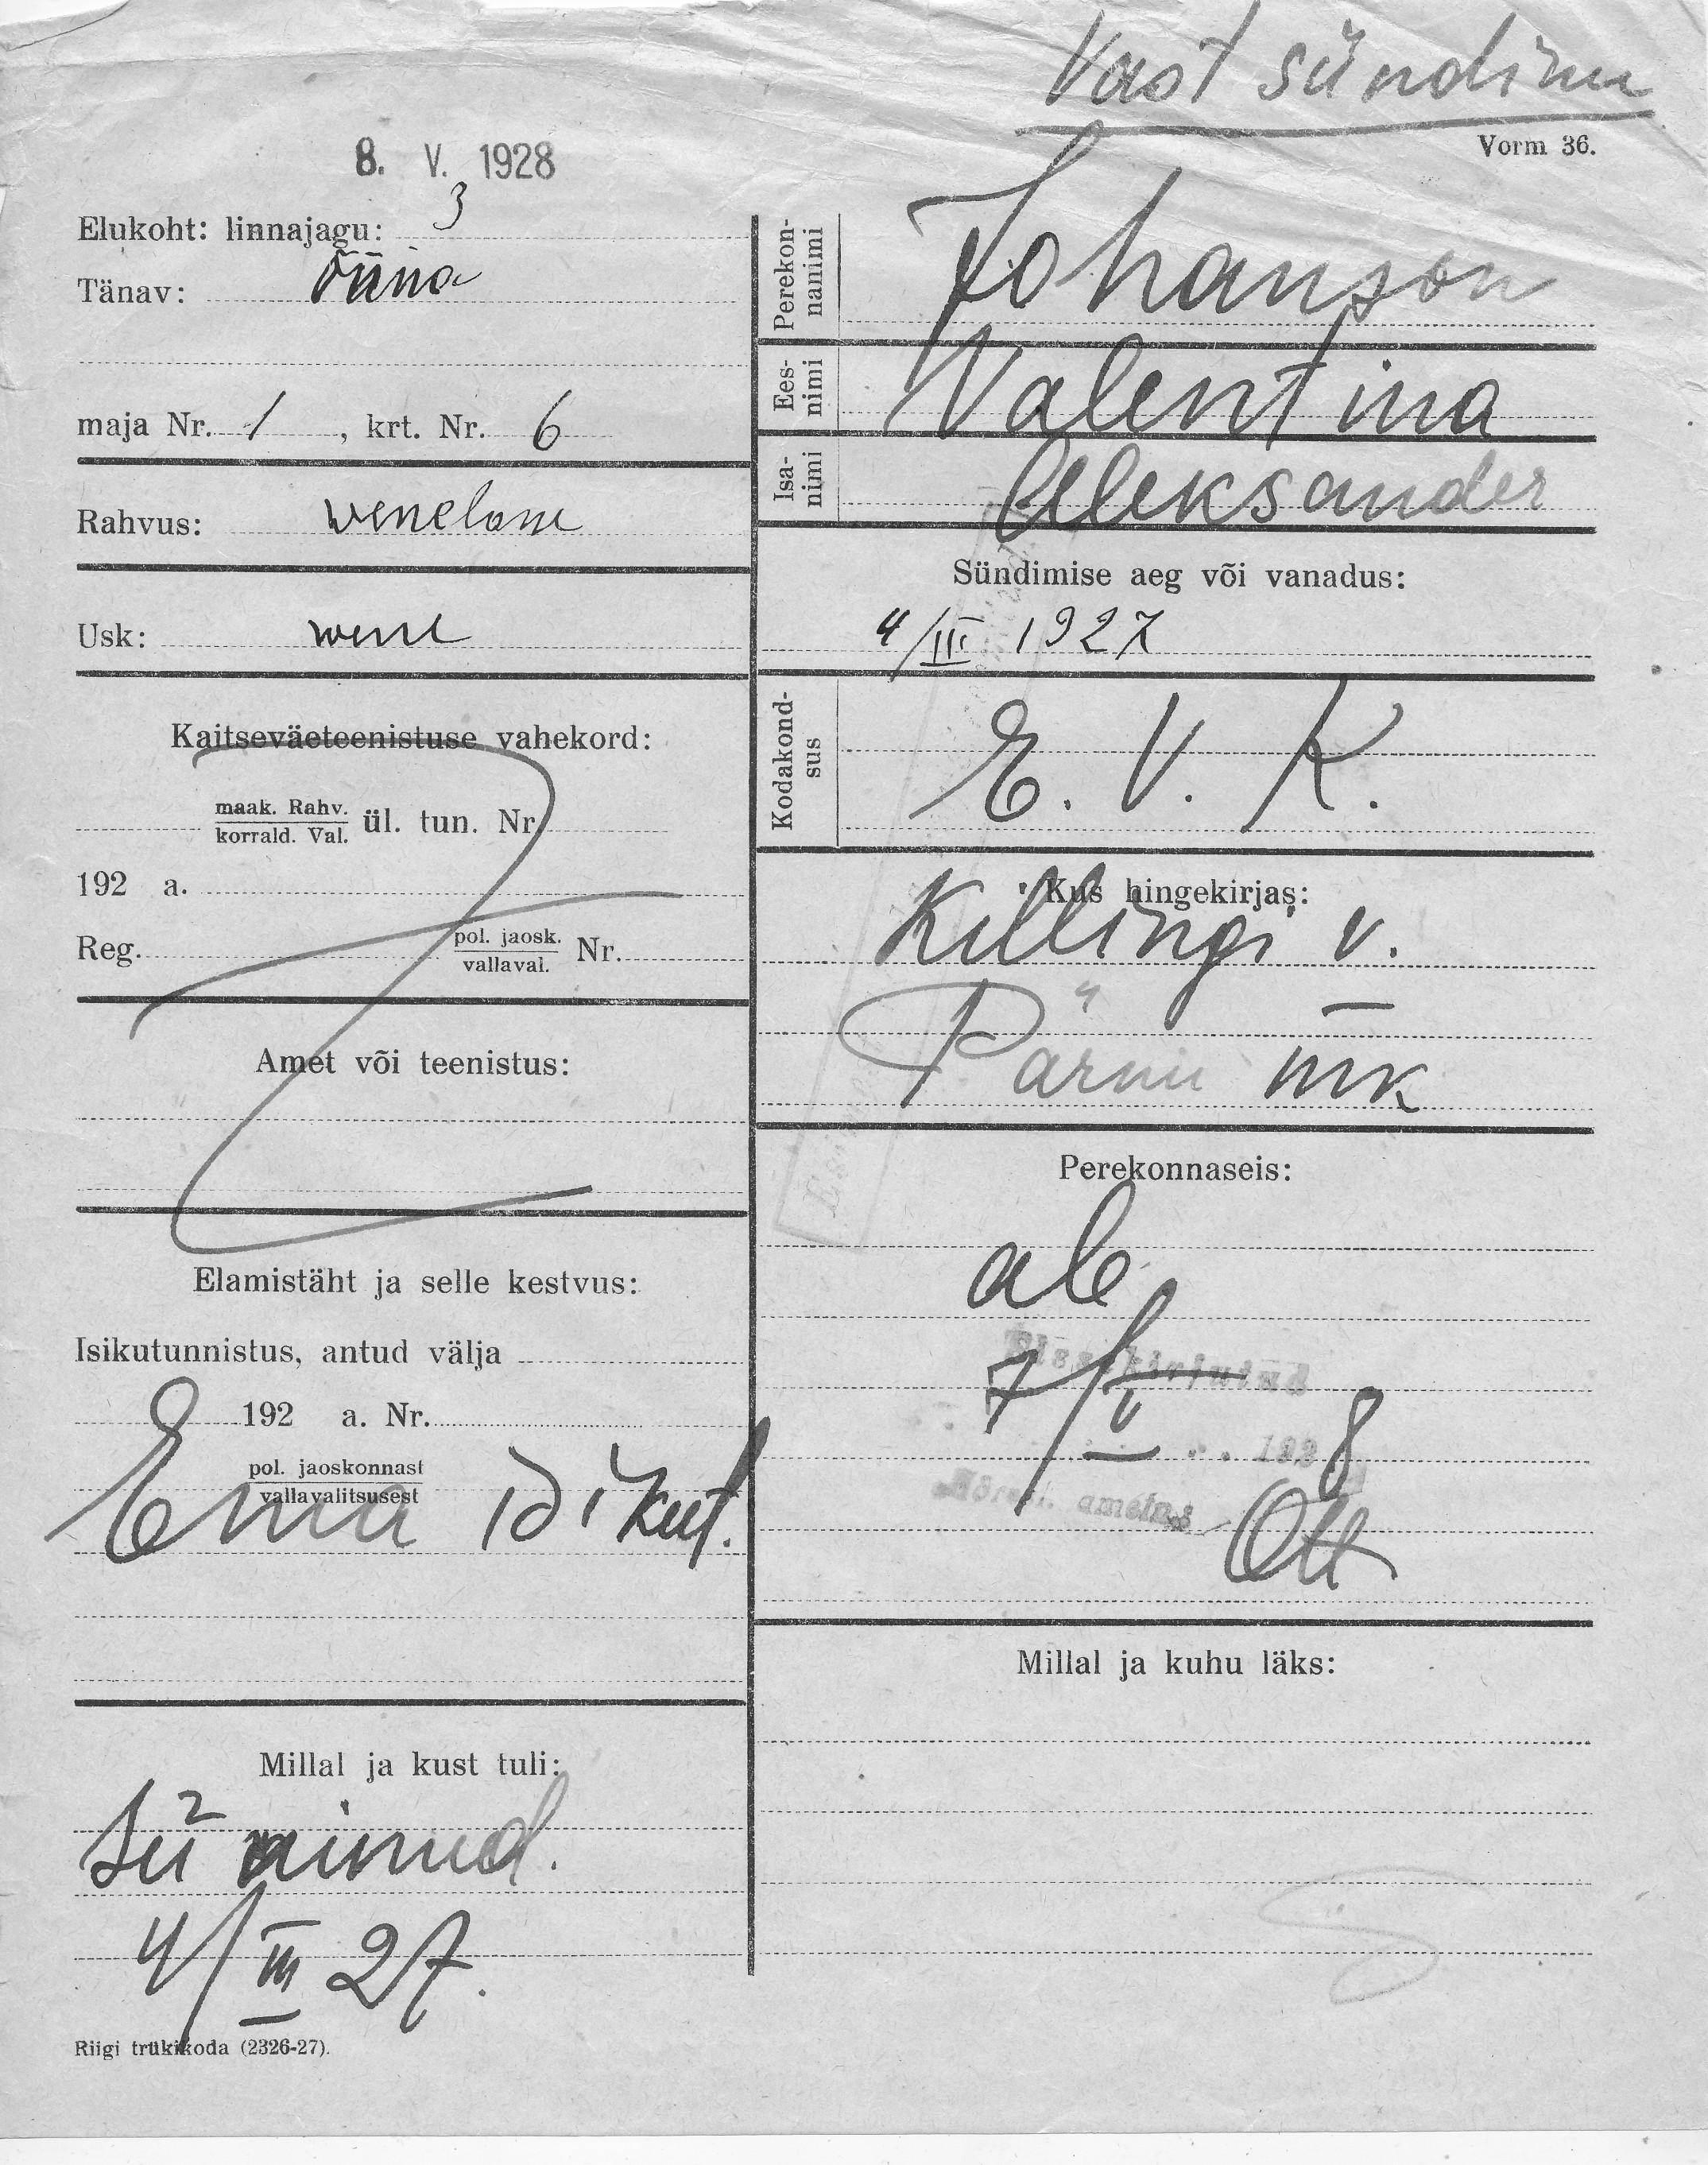 Vast sündinu
Vorm 36.
8. V. 1928
Elukoht: linnajagu: 3
Tänav: Õuna
maja Nr. 1, krt. Nr. 6
Rahvus: wenelane
Usk: wene
Kaitseväeteenistuse vahekord:
maak. Rahv.
korrald. Val. ül. tun. Nr.
192 a.
Reg. pol. jaosk. Nr.
vallaval.
Amet või teenistus:
Elamistäht ja selle kestvus:
Isikutunnistus, antud välja
192 a. Nr.
pol. jaoskonnast
vallavalitsusest
Ema
Millal ja kust tuli:
sündinud.
4/III 27.
Riigi trükikoda (2326-27).
Perekon-
nanimi
Johanson
Ees-
nimi
Valentina
Isa-
nimi
Aleksander
Sündimise aeg või vanadus:
4/III 1927
Kodakond-
sus
E. V. K.
Kus hingekirjas:
Killingi v.
Pärnu mk
Perekonnaseis:
Sissekirjutud
7/V 1928
ametn. Ott
Millal ja kuhu läks: